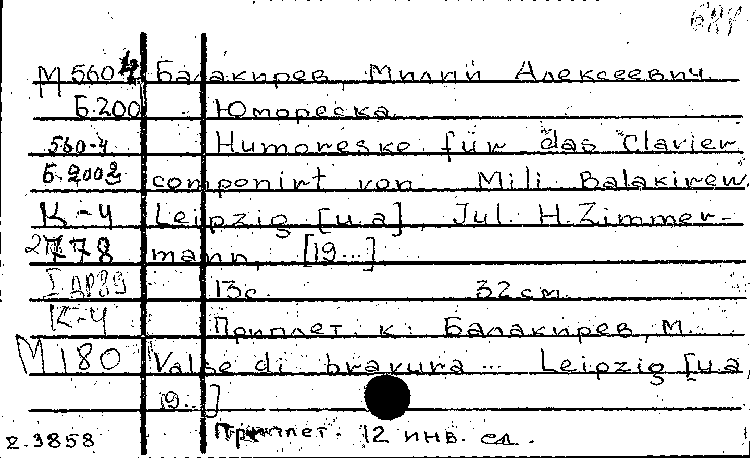 М 5604 Балакирев, Милий Алексеевич.
Б.200 Юмореска
560-4 Humoreske für das Clavier
Б.2002 componirt von Mili Balakirew
К-4 Leipzig [u.a], Jul. H. Zimmer-
778 mann, [19...]
13с. 32 см.
К-4 Приплет. к: Балакирев, М.
М180 Valse di bravura... Leipzig [u.a,
19...]
2.3858 Приплет. 12 инв. ед.